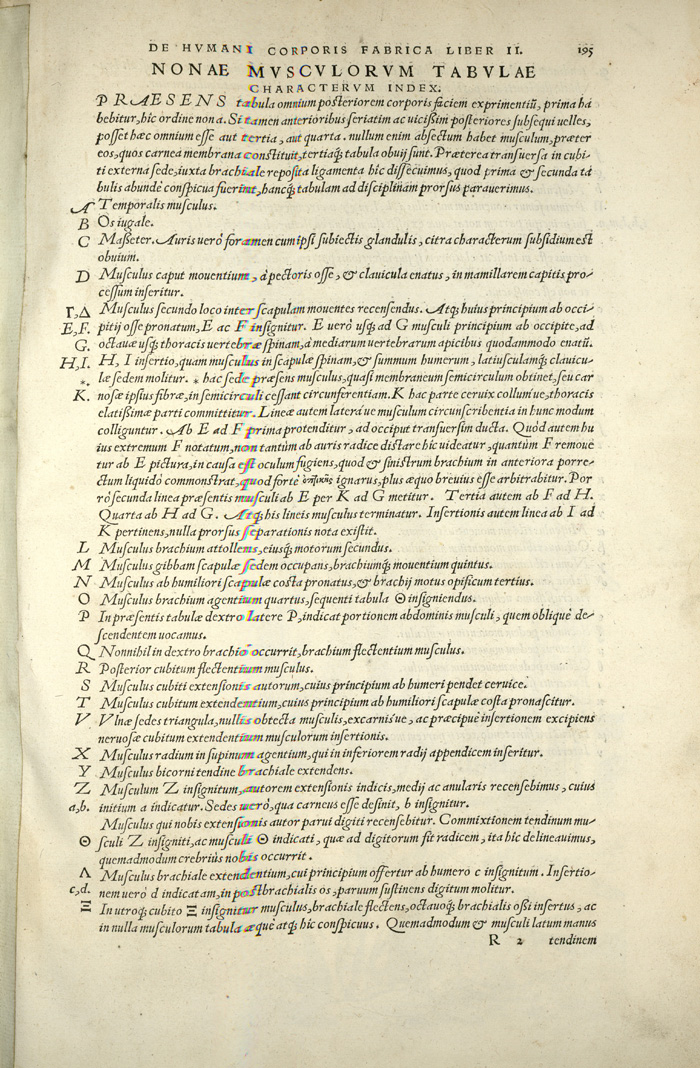 DE HVMANI CORPORIS FABRICA LIBER II. 195
NONAE MVSCVLORVM TABVLAE
CHARACTERVM INDEX.
PRAESENS tabula omnium posteriorem corporis faciem exprimentiũ, prima ha
bebitur, hic ordine nona. Si tamen anterioribus seriatim ac vicißim posteriores subsequi uelles,
posset hæc omnium esse aut tertia, aut quarta. nullum enim absectum habet musculum, præter
eos, quos carnea membrana constituit, tertiaq; tabula obuij sunt. Præterea transuersa in cubi-
ti externa sede, iuxta brachiale reposita ligamenta hic dissecuimus, quod prima & secunda ta
bulis abunde conspicua fuerint, hancq; tabulam ad disciplinam prorsus parauerimus.
A Temporalis musculus.
B Os iugale.
C Maßeter. Auris uerò foramen cum ipsi subiectis glandulis, citra characterum subsidium est
obuium.
D Musculus caput mouentium, à pectoris osse, & clauicula enatus, in mamillarem capitis pro-
cessum inseritur.
Γ,Δ Musculus secundo loco inter scapulam mouentes recensendus. Atq; huius principium ab occi-
E,F. pitij osse pronatum, E ac F insignitur. E uerò usq; ad G musculi principium ab occipite, ad
G. octauæ usq; thoracis uertebræ spinam, à mediarum uertebrarum apicibus quodammodo enatũ.
H,I. H, I insertio, quam musculus in scapulæ spinam, & summum humerum, latiusculamq; clauicu-
*. læ sedem molitur. * hac sede præsens musculus, quasi membraneum semicirculum obtinet, seu car
K. nosæ ipsius fibræ, in semicirculi cessant circunferentiam. K hac parte ceruix collum'ue, thoracis
elatißimæ parti committitur. Lineæ autem latera'ue musculum circunscribentia in hunc modum
colliguntur. Ab E ad F prima protenditur, ad occiput transuersim ducta. Quòd autem hu
ius extremum F notatum, non tantùm ab auris radice distare hic uideatur, quantùm F remoue
tur ab E pictura, in causa est oculum fugiens, quod & sinistrum brachium in anteriora porre-
ctum liquidò commonstrat, quod fortè ignarus, plus æquo breuius esse arbitrabitur. Por
rò secunda linea præsentis musculi ab E per K ad G metitur. Tertia autem ab F ad H.
Quarta ab H ad G. Atq; his lineis musculus terminatur. Insertionis autem linea ab I ad
K pertinens, nulla prorsus separationis nota existit.
L Musculus brachium attollens, eiusq; motorum secundus.
M Musculus gibbam scapulæ sedem occupans, brachiumq; mouentium quintus.
N Musculus ab humiliori scapulæ costa pronatus, & brachij motus opificum tertius.
O Musculus brachium agentium quartus, sequenti tabula Θ insigniendus.
P In præsentis tabulæ dextro latere P, indicat portionem abdominis musculi, quem obliquè de-
scendentem uocamus.
Q Nonnihil in dextro brachio occurrit, brachium flectentium musculus.
R Posterior cubitum flectentium musculus.
S Musculus cubiti extensionis autorum, cuius principium ab humeri pendet ceruice.
T Musculus cubitum extendentium, cuius principium ab humiliori scapulæ costa pronascitur.
V Vlnæ sedes triangula, nullis obtecta musculis, excarnis'ue, ac præcipuè insertionem excipiens
neruosæ cubitum extendentium musculorum insertionis.
X Musculus radium in supinum agentium, qui in inferiorem radij appendicem inseritur.
Y Musculus bicorni tendine brachiale extendens.
Z Musculum Z insignitum, autorem extensionis indicis, medij ac anularis recensebimus, cuius
a,b. initium a indicatur. Sedes uerò, qua carneus esse desinit, b insignitur.
Musculus qui nobis extensionis autor parui digiti recensebitur. Commixtionem tendinum mu-
Θ sculi Z insigniti, ac musculi Θ indicati, quæ ad digitorum fit radicem, ita hic delineauimus,
quemadmodum crebrius nobis occurrit.
Λ Musculus brachiale extendentium, cui principium offertur ab humero c insignitum. Insertio-
c,d. nem uerò d indicatam, in postbrachialis os, paruum sustinens digitum molitur.
Ξ In utroq; cubito Ξ insignitur musculus, brachiale flectens, octauoq; brachialis oßi insertus, ac
in nulla musculorum tabula æquè atq; hic conspicuus. Quemadmodum & musculi latum manus
R 2 tendinem